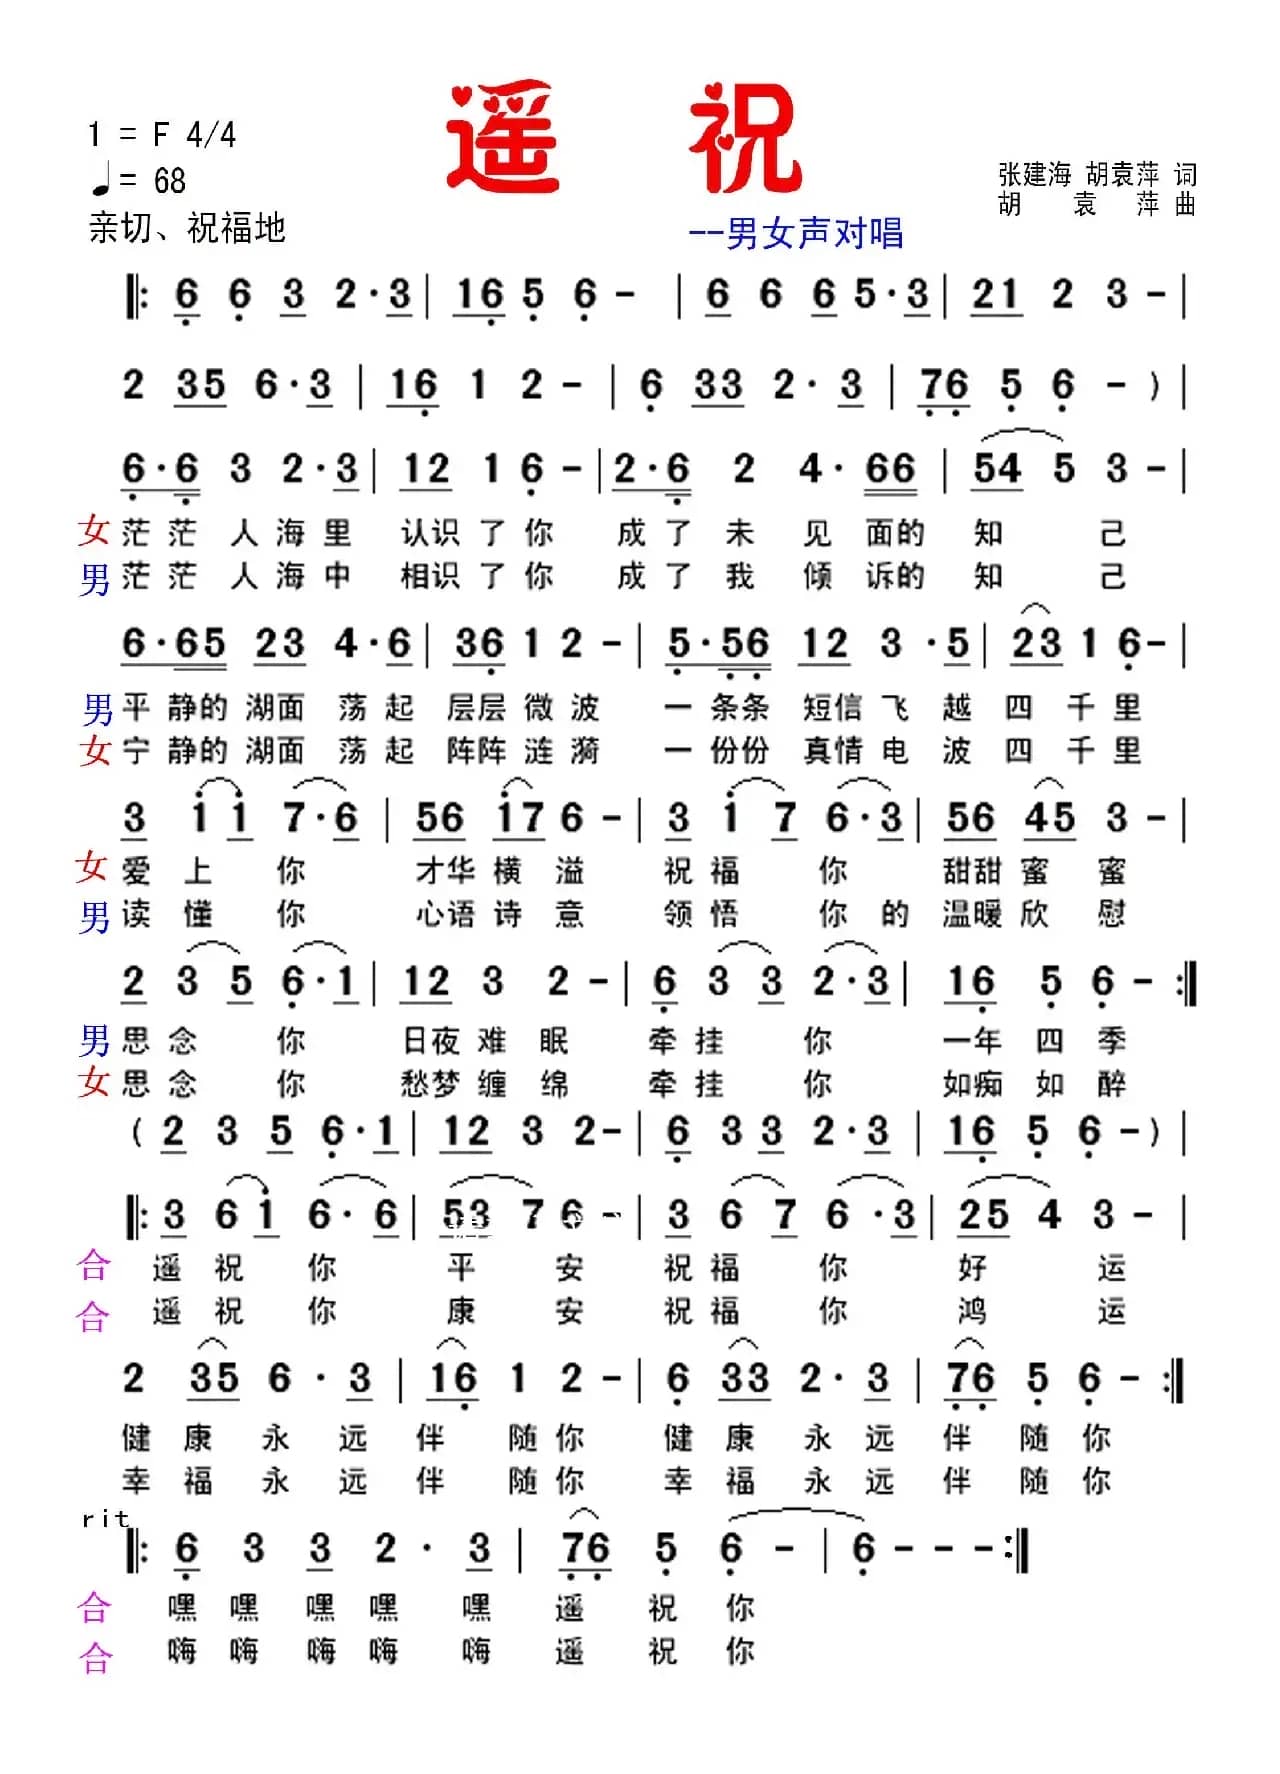 遥 祝
1 = F 4/4
♩= 68
张建海 胡袁萍 词
胡 袁 萍 曲
亲切、祝福地
--男女声对唱
‖: 6 6 3 2·3 | 16 5 6 - | 6 6 6 5·3 | 21 2 3 - |
2 35 6·3 | 16 1 2 - | 6 33 2·3 | 76 5 6 - ) |
6·6 3 2·3 | 12 1 6 - | 2·6 2 4·66 | 54 5 3 - |
女 茫茫人海里 认识了你 成了未见面的知己
男 茫茫人海中 相识了你 成了我倾诉的知己
6·65 23 4·6 | 36 1 2 - | 5·56 12 3·5 | 23 1 6 - |
男 平静的湖面荡起 层层微波 一条条短信飞越四千里
女 宁静的湖面荡起 阵阵涟漪 一份份真情电波四千里
3 1 1 7·6 | 56 17 6 - | 3 1 7 6·3 | 56 45 3 - |
女 爱上你 才华横溢 祝福你 甜甜蜜蜜
男 读懂你 心语诗意 领悟你的温暖欣慰
2 3 5 6·1 | 12 3 2 - | 6 3 3 2·3 | 16 5 6 - :‖
男 思念你 日夜难眠 牵挂你 一年四季
女 思念你 愁梦缠绵 牵挂你 如痴如醉
( 2 3 5 6·1 | 12 3 2 - | 6 3 3 2·3 | 16 5 6 - ) |
‖: 3 6 1 6·6 | 53 7 6 - | 3 6 7 6·3 | 25 4 3 - |
合 遥祝你 平安 祝福你 好运
合 遥祝你 康安 祝福你 鸿运
2 35 6·3 | 16 1 2 - | 6 33 2·3 | 76 5 6 - :‖
健康永远伴随你 健康永远伴随你
幸福永远伴随你 幸福永远伴随你
rit
‖: 6 3 3 2·3 | 76 5 6 - | 6 - - - :‖
合 嘿嘿嘿嘿嘿遥祝你
合 嗨嗨嗨嗨嗨遥祝你